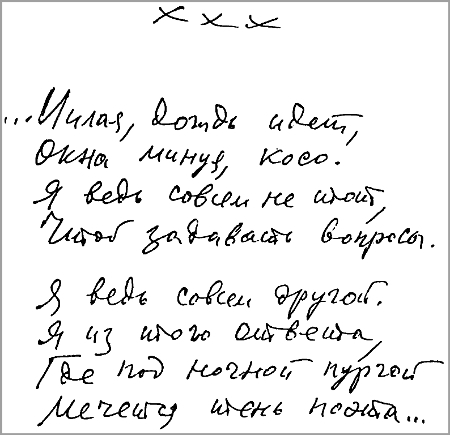 х х х
...Милая, дождь идет,
Окна минуя, косо.
Я ведь совсем не тот,
Чтоб задавать вопросы.
Я ведь совсем другой.
Я из того ответа,
Где под ночной пургой
Мечется тень поэта...